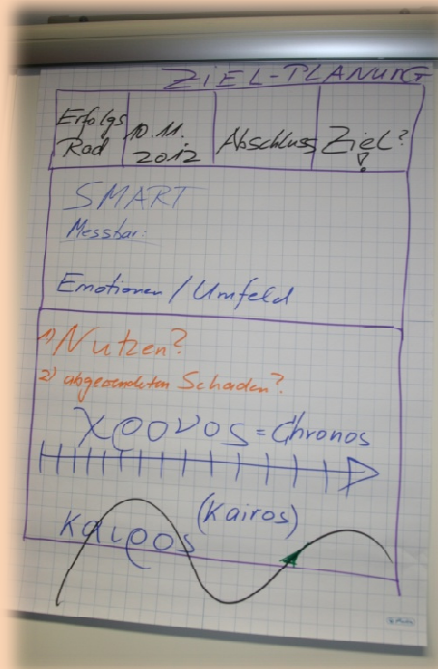 ZIEL-PLANUNG
Erfolgs Rad
10.11. 2012
Abschluss
Ziel?!
SMART
Messbar:
Emotionen / Umfeld
1) Nutzen?
2) abgewendeten Schaden?
χρονος = Chronos
(Kairos)
καιρος